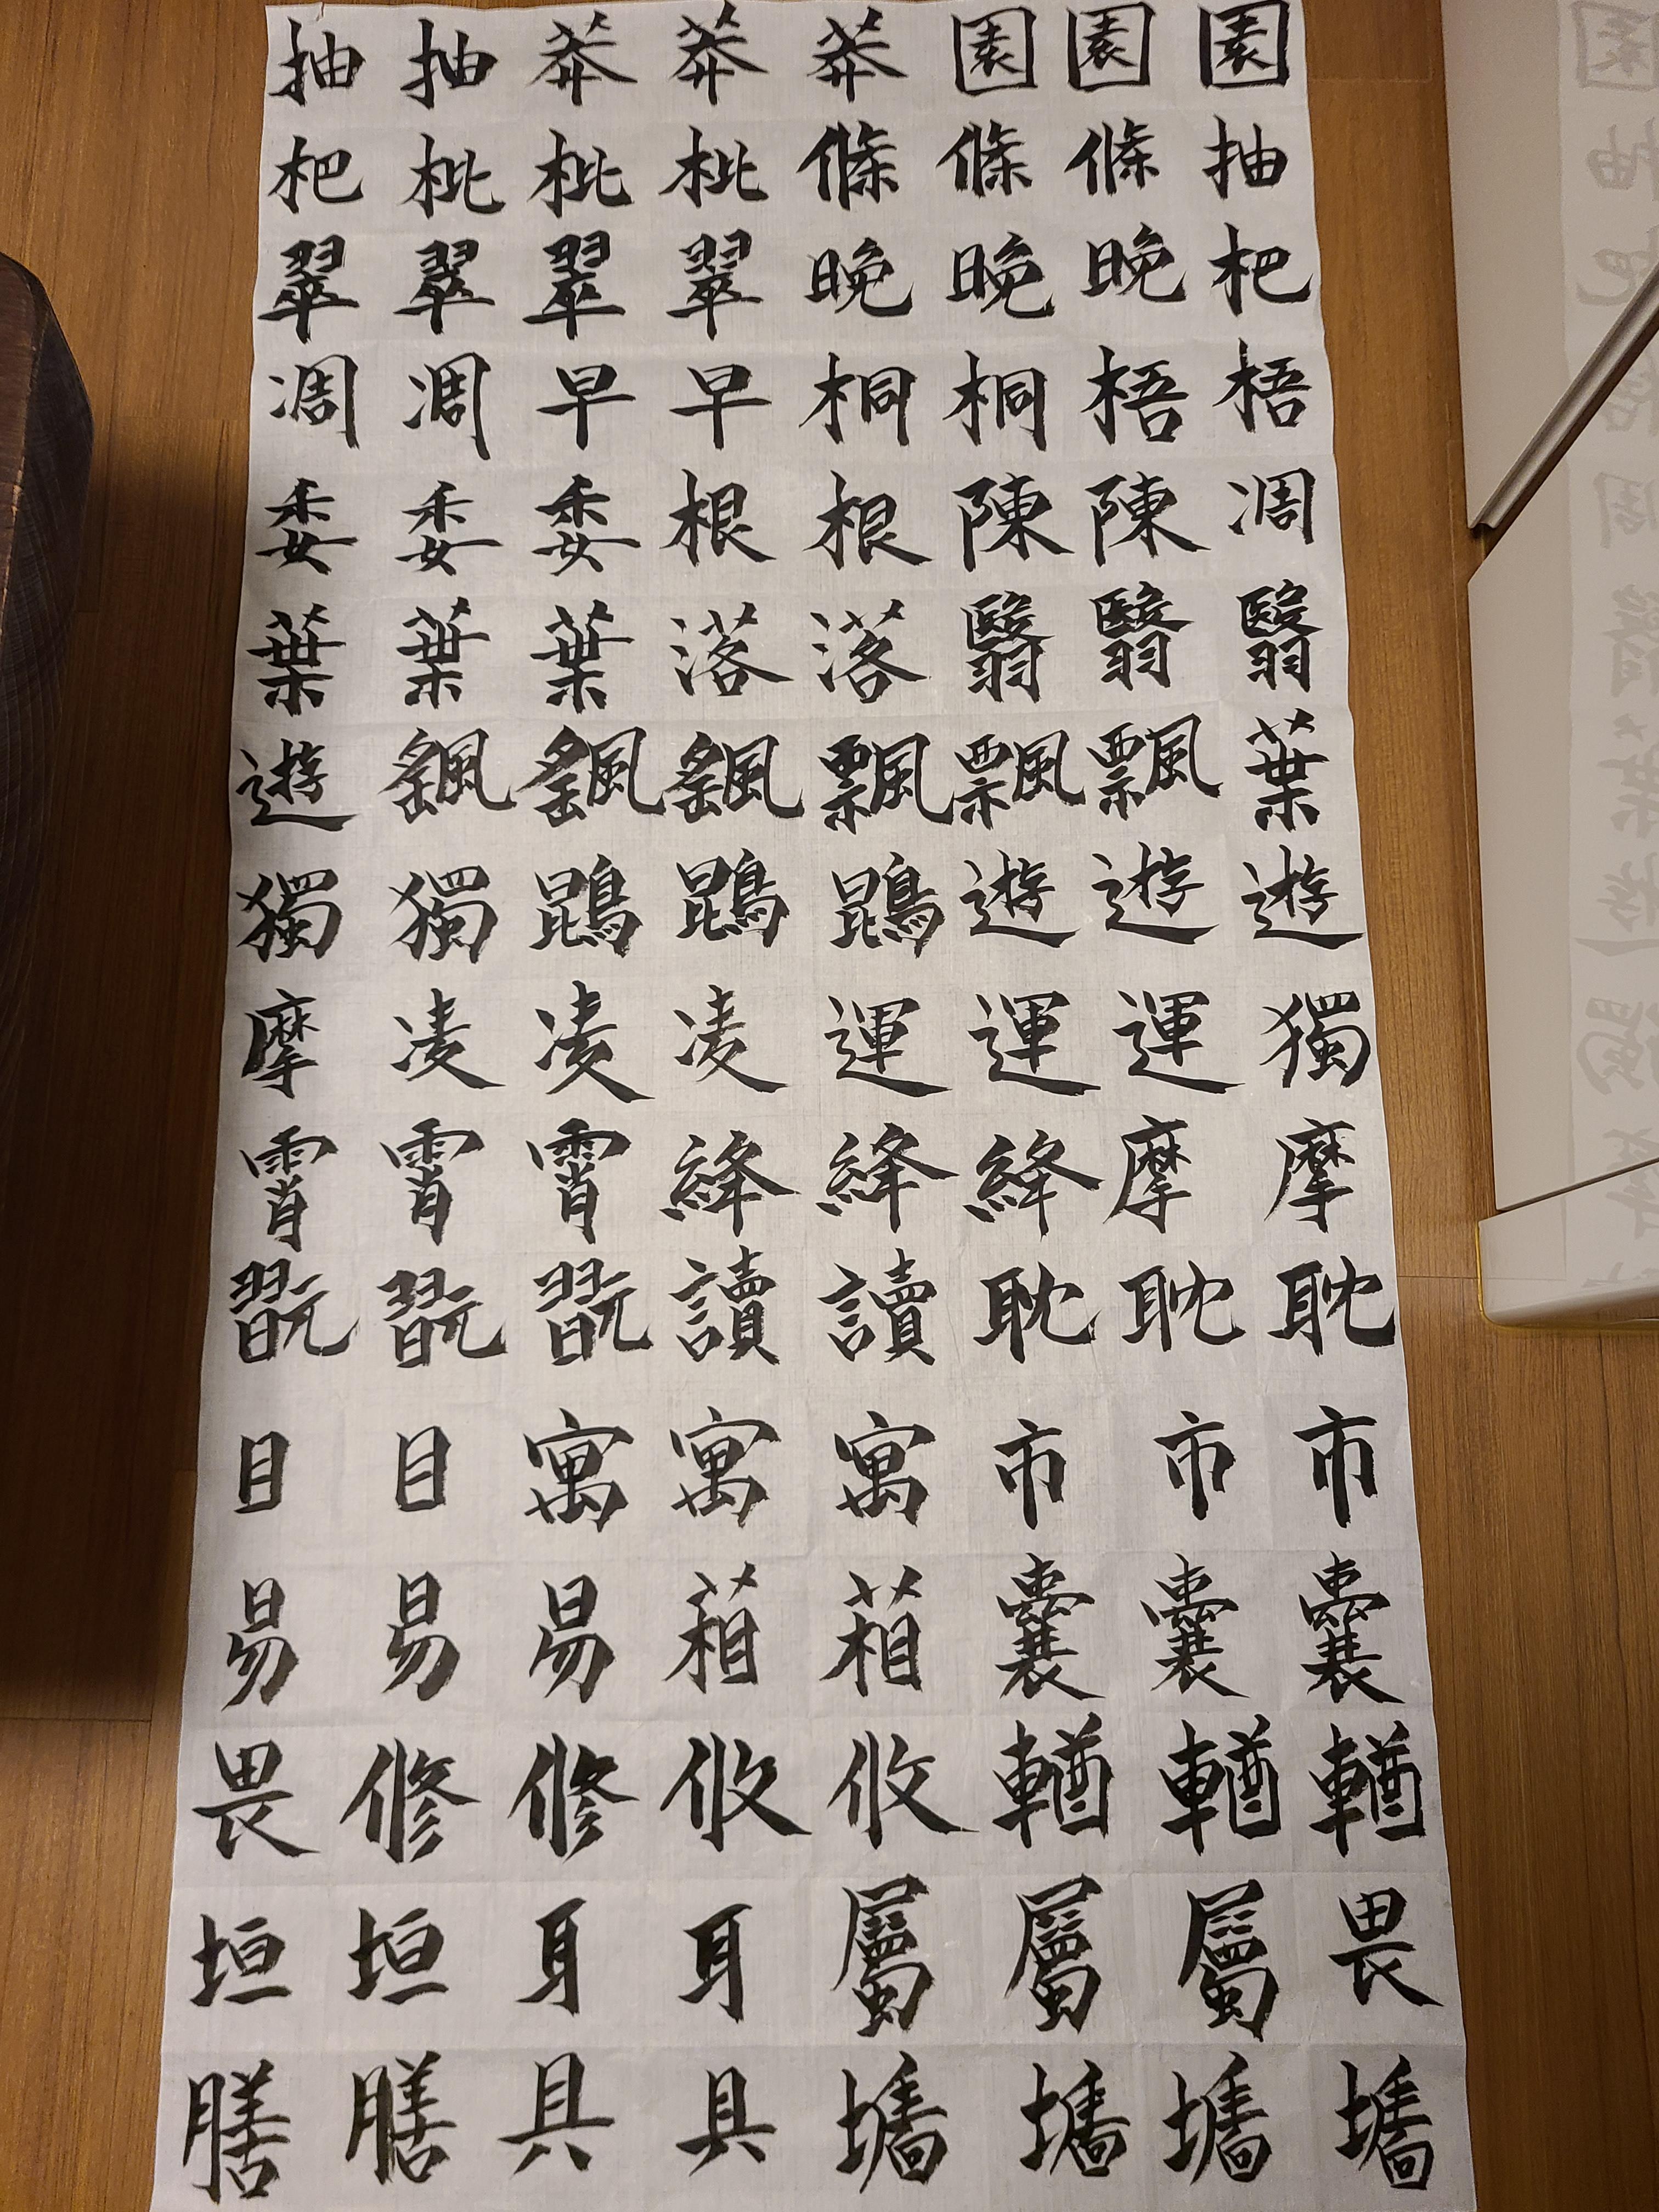 園園園莽莽莽抽抽
抽條條條枇枇枇杷
杷晚晚晚翠翠翠翠
梧梧桐桐早早凋凋
凋陳陳根根委委委
翳翳翳落落葉葉葉
葉飄飄飄颻颻颻遊
遊遊遊鵾鵾鵾獨獨
獨運運運凌凌凌摩
摩摩絳絳絳霄霄霄
耽耽耽讀讀翫翫翫
市市市寓寓寓目目
囊囊囊葙葙易易易
輶輶輶攸攸修修畏
畏屬屬屬耳耳垣垣
墻墻墻墻具具膳膳